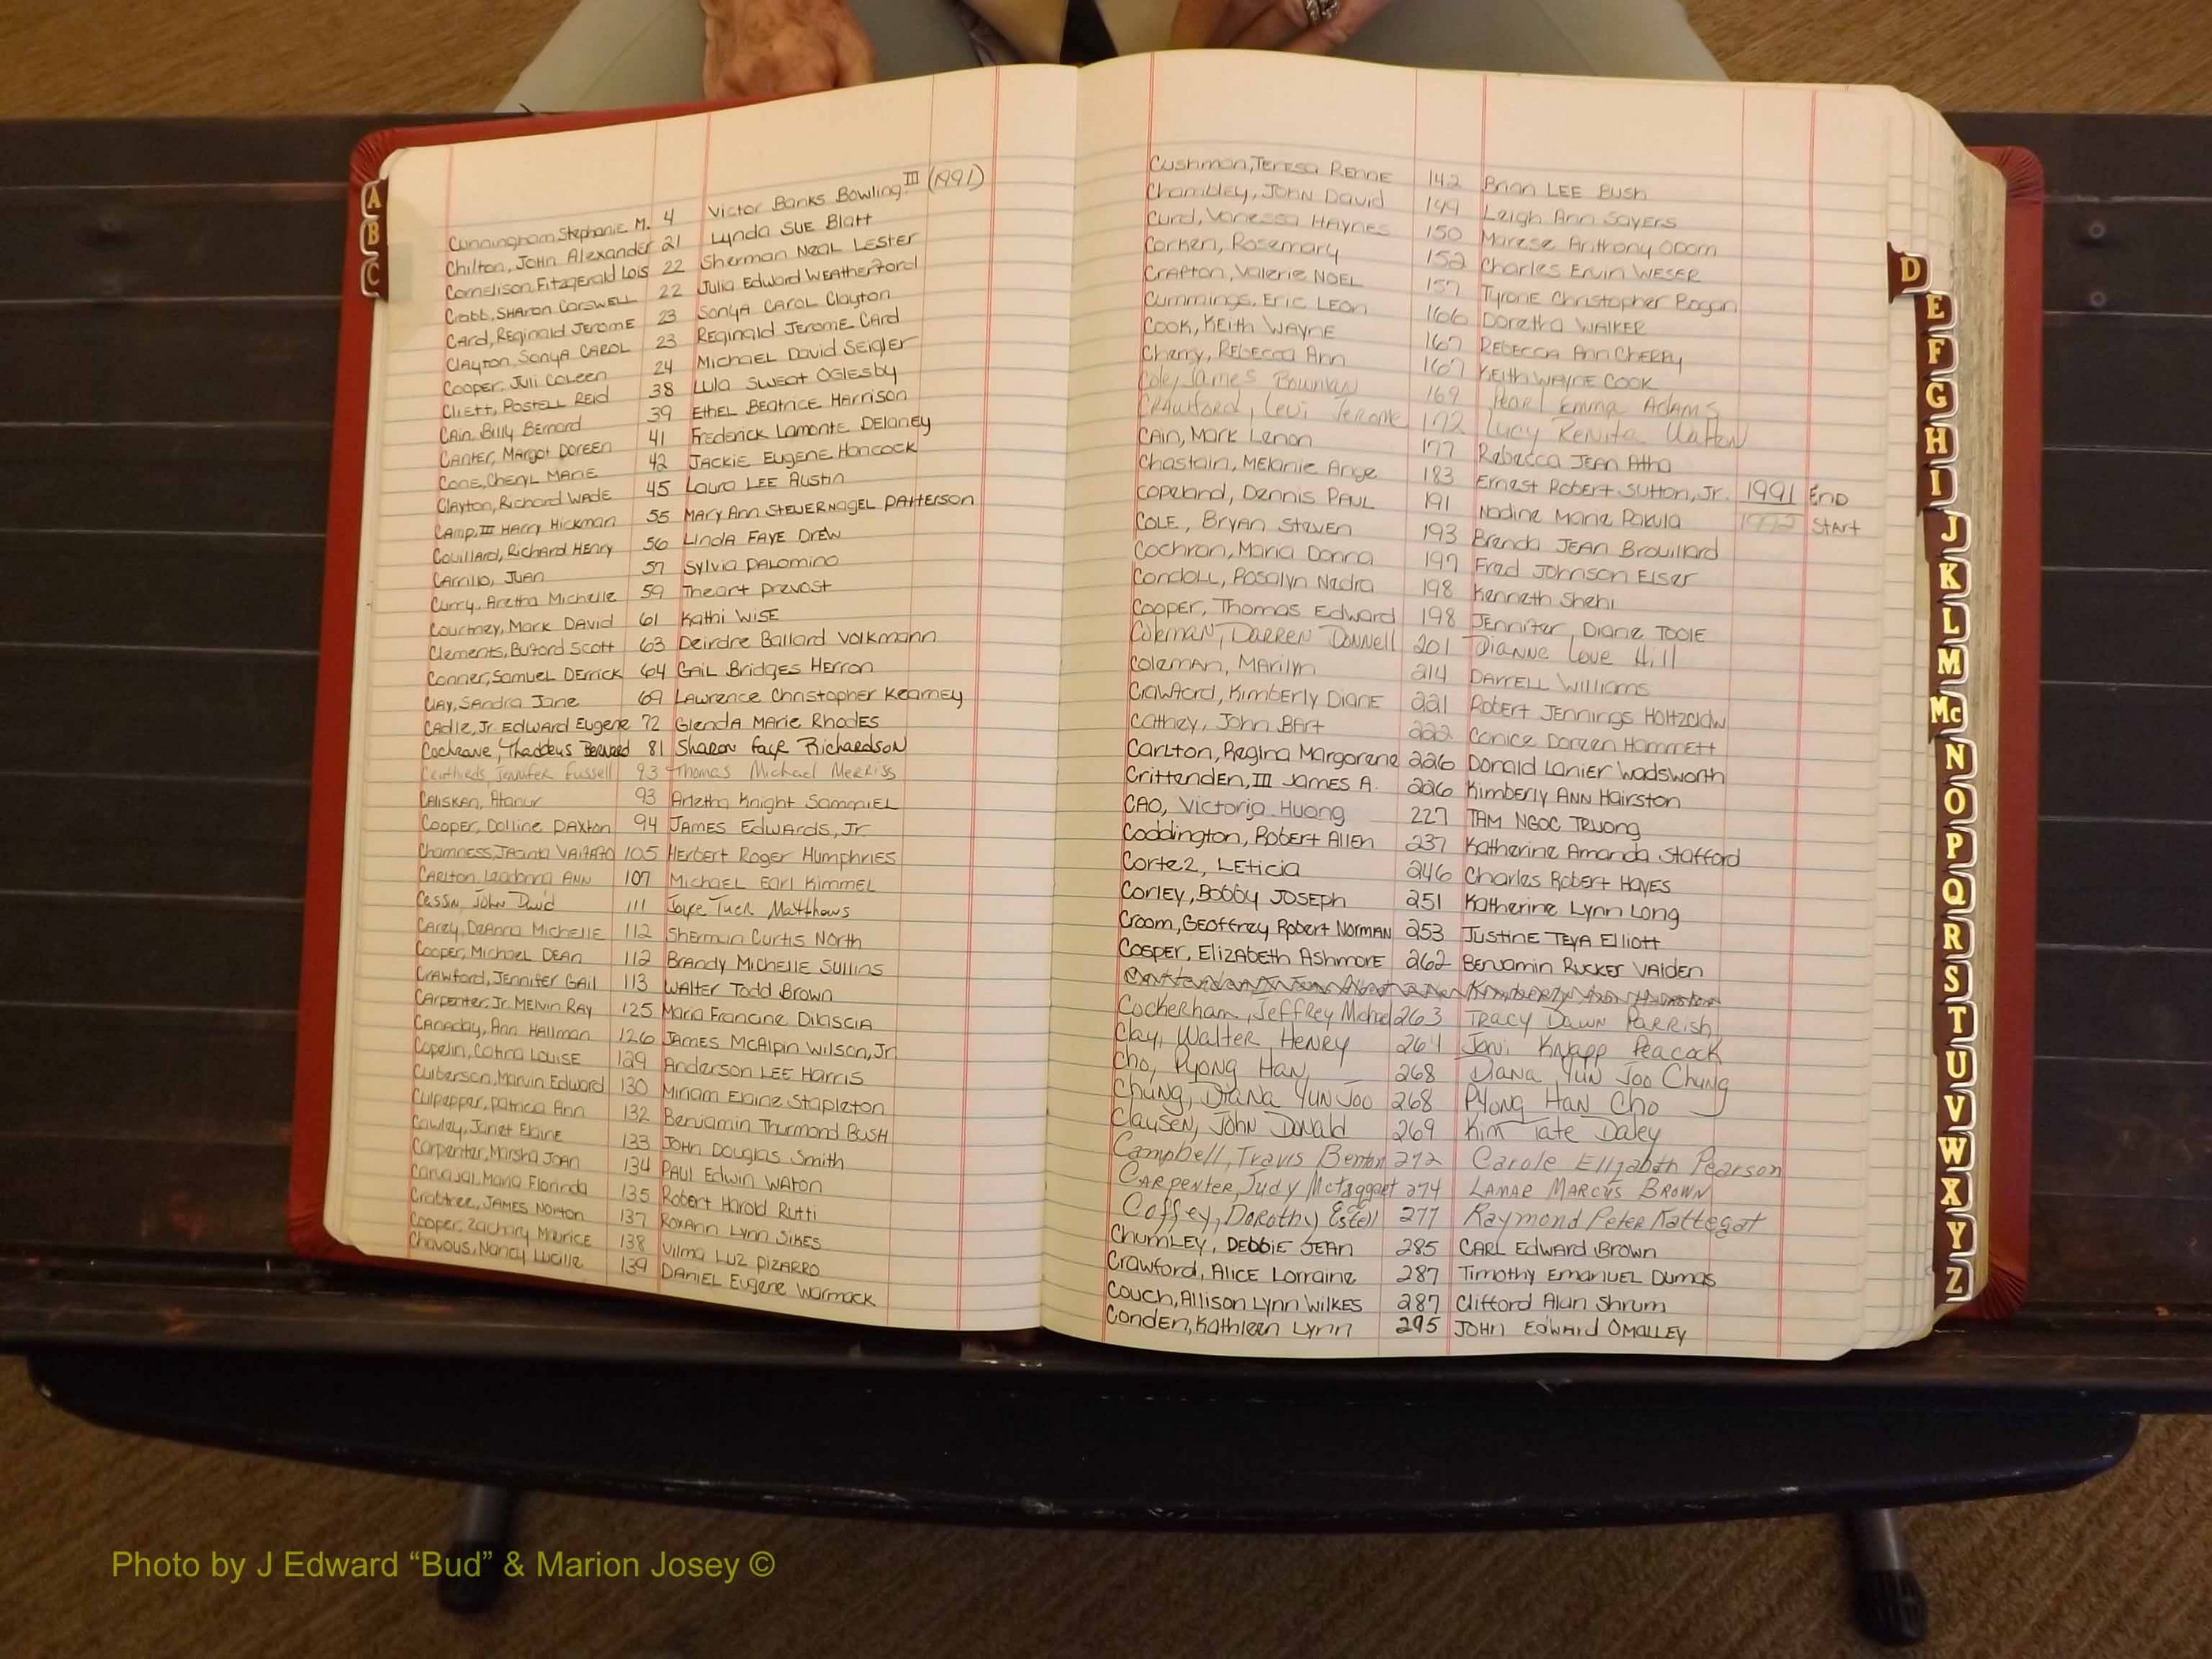 A
B
C
Cunningham Stephanie M. 4 Victor Banks Bowling III (1991)
Chilton, John Alexander 21 Lynda SUE Blatt
Cornelison, Fitzgerald Lois 22 Sherman NEAL LESTER
Crabb, SHAron CARSWELL 22 Julia Edward WEATHERford
CArd, REginald JEROME 23 SONYA CAROL Clayton
Clayton, SonyA CAROL 23 REginald JEROME CArd
Cooper, Juli COLEEN 24 Michael David SEigler
Cliett, POSTELL REID 38 LULA SWEAT OGLESBY
CAin, Billy Bernard 39 EtHEL BEAtrice HArrison
CANTER, MArgot DOREEN 41 Frederick LAMONTE DELANEY
CONE, CHERYL MARIE 42 JACKIE EUGENE HANCOCK
Clayton, RicHArd WADE 45 LAURA LEE Austin
CAmp, III HArry Hickman 55 MARY Ann STEUERNAGEL PATTERSON
Couillard, Richard HENry 56 LINDA FAYE DREW
CArrillo, JUAN 57 Sylvia PALOMINO
Curry, Aretha Michelle 59 Theart Prevost
Courtney, MArk DAVID 61 KAthi WISE
Clements, Buford Scott 63 Deirdre BALLARD VOLKMANN
Conner, SAmUEL DErrick 64 GAIL Bridges HERRON
CLAY, SAndra JANE 69 LAWRENCE Christopher KEARNEY
CAdle, Jr. Edward EugenE 72 GlENDA MARIE RhodES
Cochrane, Thaddeus Bernard 81 Sharon FAYE RichardsoN
Jennifer Fussell 93 Thomas Michael MERRISS
CALISKAN, Atanur 93 Aretha Knight SAmmIEL
Cooper, Dolline PAXton 94 JAMES EdwArds, Jr.
Chamness, 105 HErbert Roger HumphriES
CARLton, Leadonna ANN 107 MichAEL EARL Kimmel
Cassin, John David 111 Joyce Tuck Matthews
CAREY, DEAnna MichELLE 112 SHermAN Curtis NORTH
Cooper, MichaEL DEAN 112 BrANdy MichELLE SULLINS
CrAwford, JENnifer GAIL 113 WALTER Todd Brown
CArpenter, Jr. MELVIN RAY 125 MAria FrAncINE DilasciA
CANADAY, Ann HAllman 126 JAMES McAlpin WILSON, Jr.
CopELIN, CAtina LOUISE 129 Anderson LEE HArris
Culberson, MArvin Edward 130 MiriAm ELAINE StapLEton
Culpepper, PAtricia Ann 132 BENJAmin ThurmoND BUSH
Cawley, JANET ElAINE 133 JOHN DougLAS Smith
CArpenter, MArsHA JOAN 134 PAUL Edwin WAton
CArvajal, MAria Florinda 135 Robert HArold Rutti
Crabtree, JAMES Norton 137 RoxAnn LYNN SIKES
Cooper, ZAchary MAURICE 138 VilmA LUZ PIZARRO
Chavous, NAncy LUCILLE 139 DANIEL EugENE WarmAck
Cushman, TEresa RENNE 142 Brian LEE Bush
Chambley, JOHN David 149 Leigh Ann SAYERS
Curd, VANESSA HAYNES 150 MArese Anthony Odom
Corken, ROSEMARY 152 ChArles Ervin WESER
CrAfton, VALERIE NOEL 157 TyronE Christopher Bogan
Cummings, Eric LEON 166 DorethA WALKER
COOK, KEith WAYNE 167 REBECCA Ann CHERRY
CHERRY, REBECCA Ann 167 KEITH WAYNE COOK
Cole, James Bowman 169 Pearl Emma ADAMS
CRAWFORD, Levi Jerome 172 Lucy Renita
CAin, MArk Lenon 177 REbecca JEAN AtHA
Chastain, MELANIE Ange 183 ErnEST Robert Sutton, Jr. 1991 End
COPELAND, DENNIS PAUL 191 NADINE MARIE PAKULA 1992 Start
COLE, BryAN STEVEN 193 BrENDA JEAN Brouillard
Cochran, MAria DonnA 197 Fred JohnSON ELSER
ConDOLL, ROSALYN NAdra 198 KENNETH Shehi
Cooper, Thomas Edward 198 JENNIfer DIANE TOOLE
Coleman, DARREN DONNELL 201 DIANNE Love Hill
COLEMAN, MARILYN 214 DARRELL WILLIAMS
CrAwford, KimberLY DIANE 221 Robert JENNINGS HOLTZCLAW
CAthey, John BArt 222 CANICE DorEEN HAMMETT
CARLTON, REGINA MArgorene 226 DONALD LANIER WADSWORTH
Crittenden, III JAMES A. 226 Kimberly ANN HAIRSTON
CAO, VICTORIA HUONG 227 TAM NGOC TRUONG
CODDINGTON, Robert ALLEN 237 KATHERINE AMANDA STAFFORD
CorteZ, LETICIA 246 Charles Robert HAYES
Corley, Bobby JOSEPH 251 KAtherine Lynn LONG
Croom, GEoffrey Robert NORMAN 253 JUSTINE TEYA Elliott
CosPER, ELIZABEth AshmORE 262 BENJAMIN RUCKER VAIDEN
Cockerham, Jeffrey Michael 263 TRACY DAWN PARRISH
Clay, Walter HENRY 264 Joni KNAPP Peacock
Cho, PYONG HAN 268 DIANA YUN Joo Chung
Chung, DIANA YUN Joo 268 PYONG HAN CHO
ClauseN, John DONALD 269 Kim TATE Daley
Campbell, Travis Benton 272 Carole Elizabeth Pearson
CARPENTER, Judy McTaggart 274 LAMAR MARCUS BROWN
Coffey, Dorothy Estell 277 Raymond Peter Kattegat
CHUMLEY, DEBBIE JEAN 285 CARL Edward Brown
Crawford, ALICE LorrAINE 287 Timothy EmANUEL DumAS
Couch, Allison LYNN WILKES 287 Clifford Alan Shrum
CONDEN, KAthleen LYNN 295 JOHN Edward OMALLEY
D
E
F
G
H
I
J
K
L
M
Mc
N
O
P
Q
R
S
T
U
V
W
X
Y
Z
Photo by J Edward “Bud” & Marion Josey ©